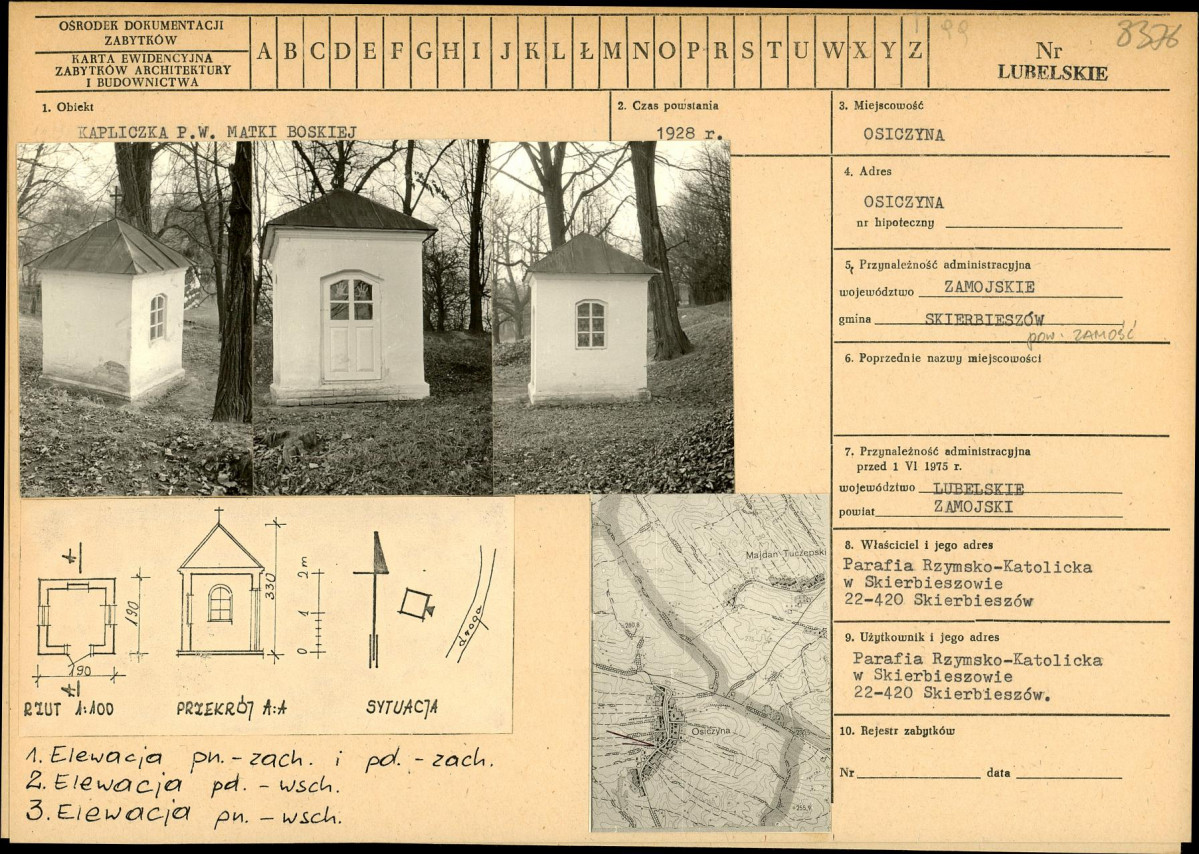 OŚRODEK DOKUMENTACJI
ZABYTKÓW
KARTA EWIDENCYJNA
ZABYTKÓW ARCHITEKTURY
I BUDOWNICTWA
A B C D E F G H I J K L Ł M N O P R S T U W X Y Z
99
8376
Nr
LUBELSKIE
1. Obiekt
KAPLICZKA P.W. MATKI BOSKIEJ
2. Czas powstania
1928 r.
3. Miejscowość
OSICZYNA
4. Adres
OSICZYNA
nr hipoteczny
5. Przynależność administracyjna
województwo ZAMOJSKIE
gmina SKIERBIESZÓW
pow. ZAMOŚĆ
6. Poprzednie nazwy miejscowości
7. Przynależność administracyjna
przed 1 VI 1975 r.
województwo LUBELSKIE
powiat ZAMOJSKI
8. Właściciel i jego adres
Parafia Rzymsko-Katolicka
w Skierbieszowie
22-420 Skierbieszów
9. Użytkownik i jego adres
Parafia Rzymsko-Katolicka
w Skierbieszowie
22-420 Skierbieszów.
10. Rejestr zabytków
Nr data
A
190
190
A
RZUT 1:100
330
PRZEKRÓJ A:A
0 1 2m
droga
SYTUACJA
Majdan Tuczępski
260,8
Osiczyna
255,9
1. Elewacja pn.-zach. i pd.-zach.
2. Elewacja pd.-wsch.
3. Elewacja pn.-wsch.